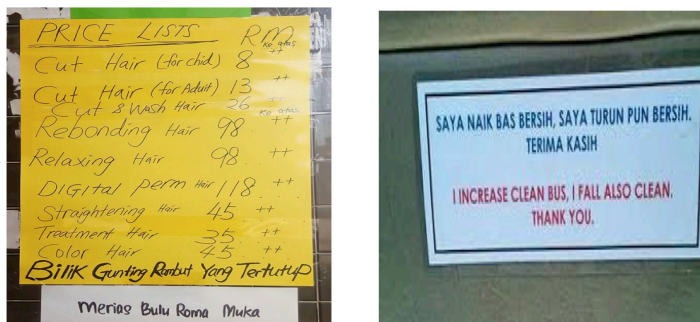 PRICE LISTS RM
ke atas
Cut Hair (for chid) 8 ++
Cut Hair (for Aduit) 13 ++
Cut & Wash Hair 26 ++
ke atas
Rebonding Hair 98 ++
Relaxing Hair 98 ++
DIGItal perm Hair 118 ++
Straightening Hair 45 ++
Treatment Hair 35 ++
Color Hair 45 ++
Bilik Gunting Rambut Yang Tertutup
Merias Bulu Roma Muka
SAYA NAIK BAS BERSIH, SAYA TURUN PUN BERSIH.
TERIMA KASIH
I INCREASE CLEAN BUS, I FALL ALSO CLEAN.
THANK YOU.